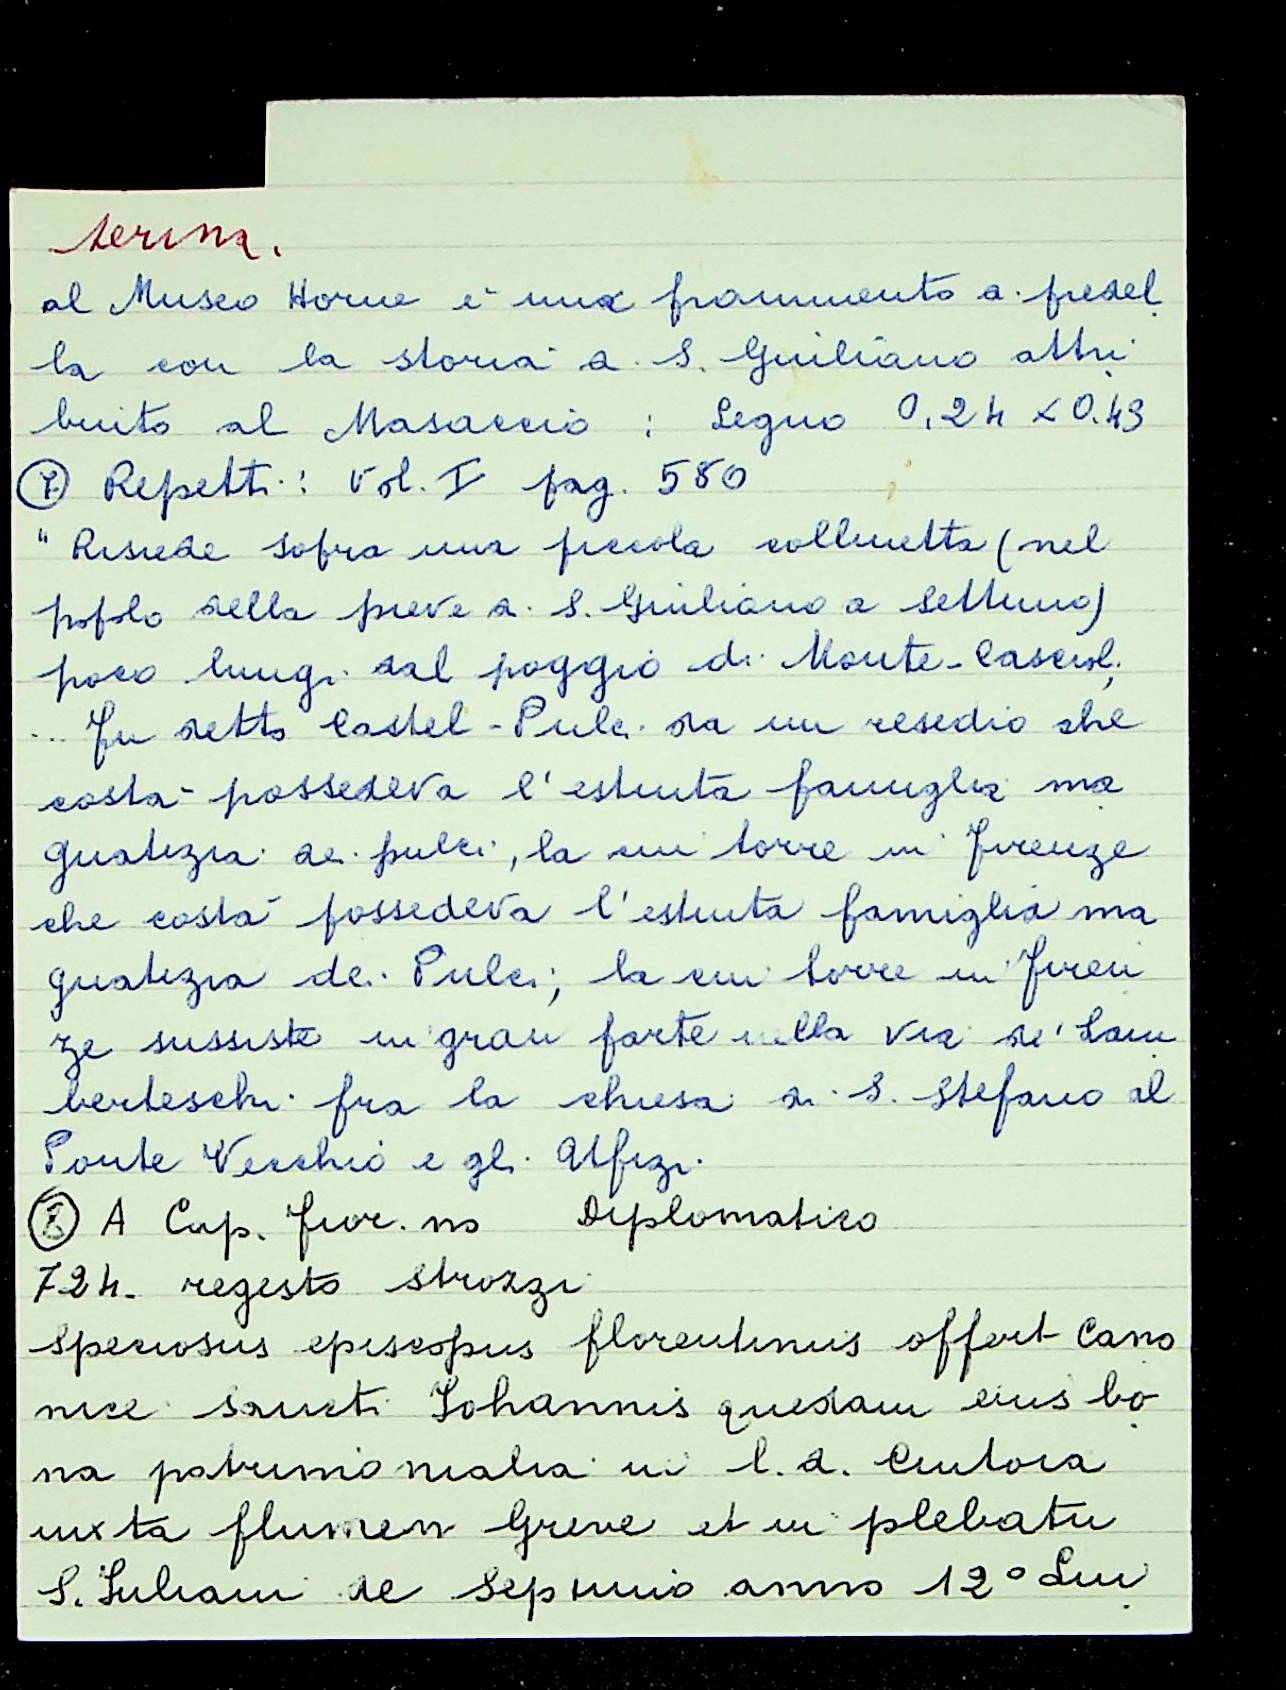 terina.
al Museo Horne è una frammento di predel
la con la storia di S. Giuliano attri
buito al Masaccio : Legno 0,24 x 0.43
⑦ Repetti : Vol. I pag. 580
"Risiede sopra una piccola collinetta (nel
popolo della pieve di S. Giuliano a Settimo)
poco lungi dal poggio di Monte-Cascioli,
... Fu detto Castel-Pulci da un resedio che
costà possedeva l'estinta famiglia ma
gnatizia dei pulci, la cui torre in Firenze
che costà possedeva l'estinta famiglia ma
gnatizia dei Pulci; la cui torre in Firen
ze sussiste in gran parte nella via de' Lam
berteschi fra la chiesa di S. Stefano al
Ponte Vecchio e gli Uffizi.
⑧ A Cap. Fior. no Diplomatico
724. regesto Strozzi
Speciosus episcopus florentinus offert Cano
nice sancti Iohannis quedam eius bo
na patrimonialia in l. d. Cintoia
iuxta flumen Greve et in plebatu
S. Iuliani de Septimio anno 12° Liu